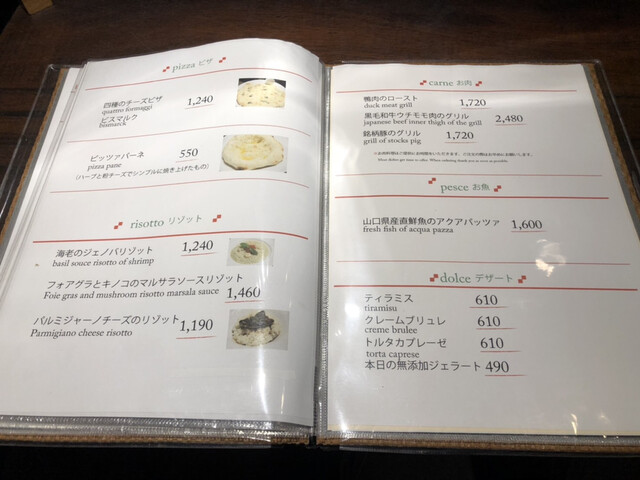 pizza ピザ
四種のチーズピザ 1,240
quattro formaggi
ビスマルク
bismarck
ピッツァパーネ 550
pizza pane
(ハーブと粉チーズでシンプルに焼き上げたもの)
risotto リゾット
海老のジェノバリゾット 1,240
basil souce risotto of shrimp
フォアグラとキノコのマルサラソースリゾット
Foie gras and mushroom risotto marsala sauce 1,460
パルミジャーノチーズのリゾット 1,190
Parmigiano cheese risotto
carne お肉
鴨肉のロースト 1,720
duck meat grill
黒毛和牛ウチモモ肉のグリル 2,480
japanese beef inner thigh of the grill
銘柄豚のグリル 1,720
grill of stocks pig
pesce お魚
山口県産直鮮魚のアクアパッツァ 1,600
fresh fish of acqua pazza
dolce デザート
ティラミス 610
tiramisu
クレームブリュレ 610
creme brulee
トルタカプレーゼ 610
torta caprese
本日の無添加ジェラート 490